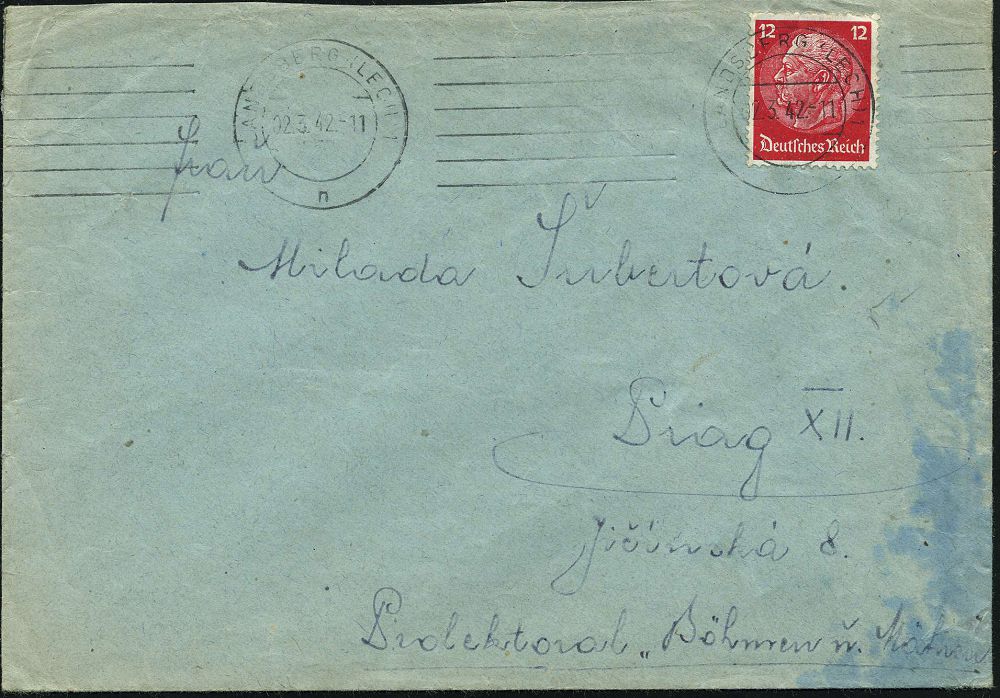 12 12
Deutsches Reich
LANDSBERG (LECH)
02.3.42.-11
n
LANDSBERG (LECH)
02.3.42.-11
Frau
Milada Šubertová.
Prag XII.
Jičínská 8.
Protektorat „Böhmen u. Mähren